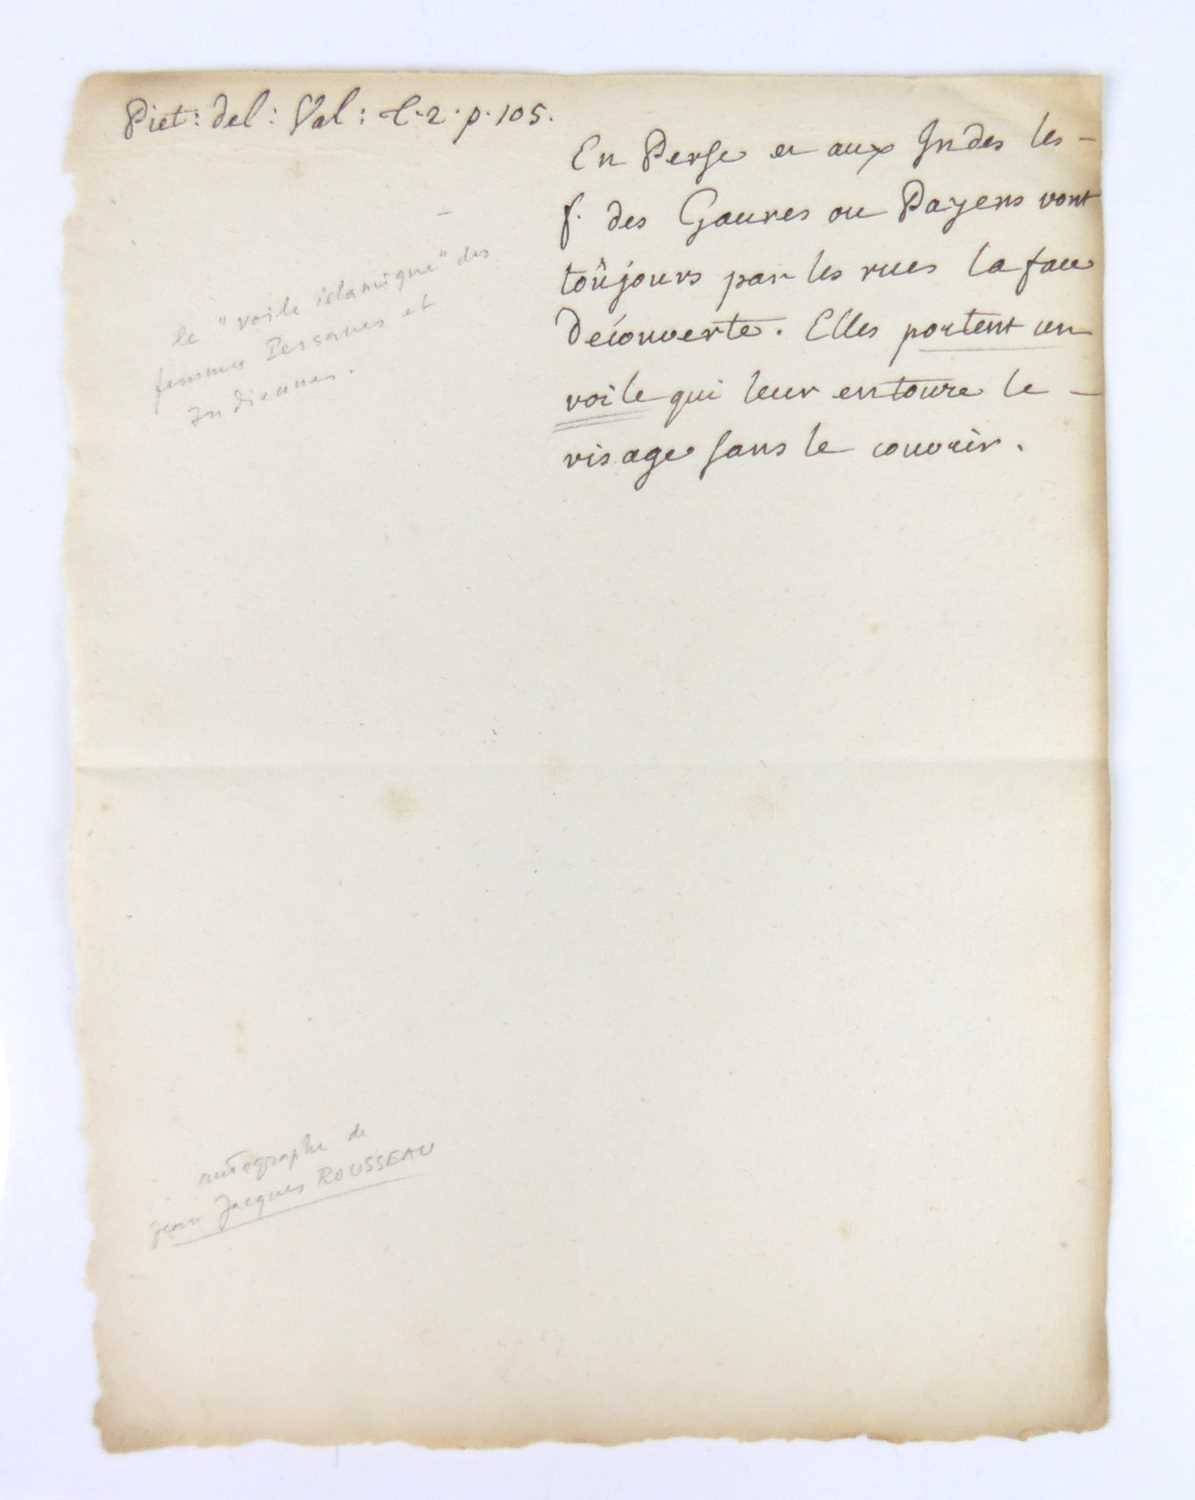 Piet: del: Val: t. 2. p. 105.
En Perse et aux Indes les
f. des Gaures ou Payens vont
toûjours par les rues la face
découverte. Elles portent un
voile qui leur entoure le
visage sans le couvrir.
le "voile islamique" des
femmes Persanes et
Indiennes.
autographe de
Jean Jacques ROUSSEAU